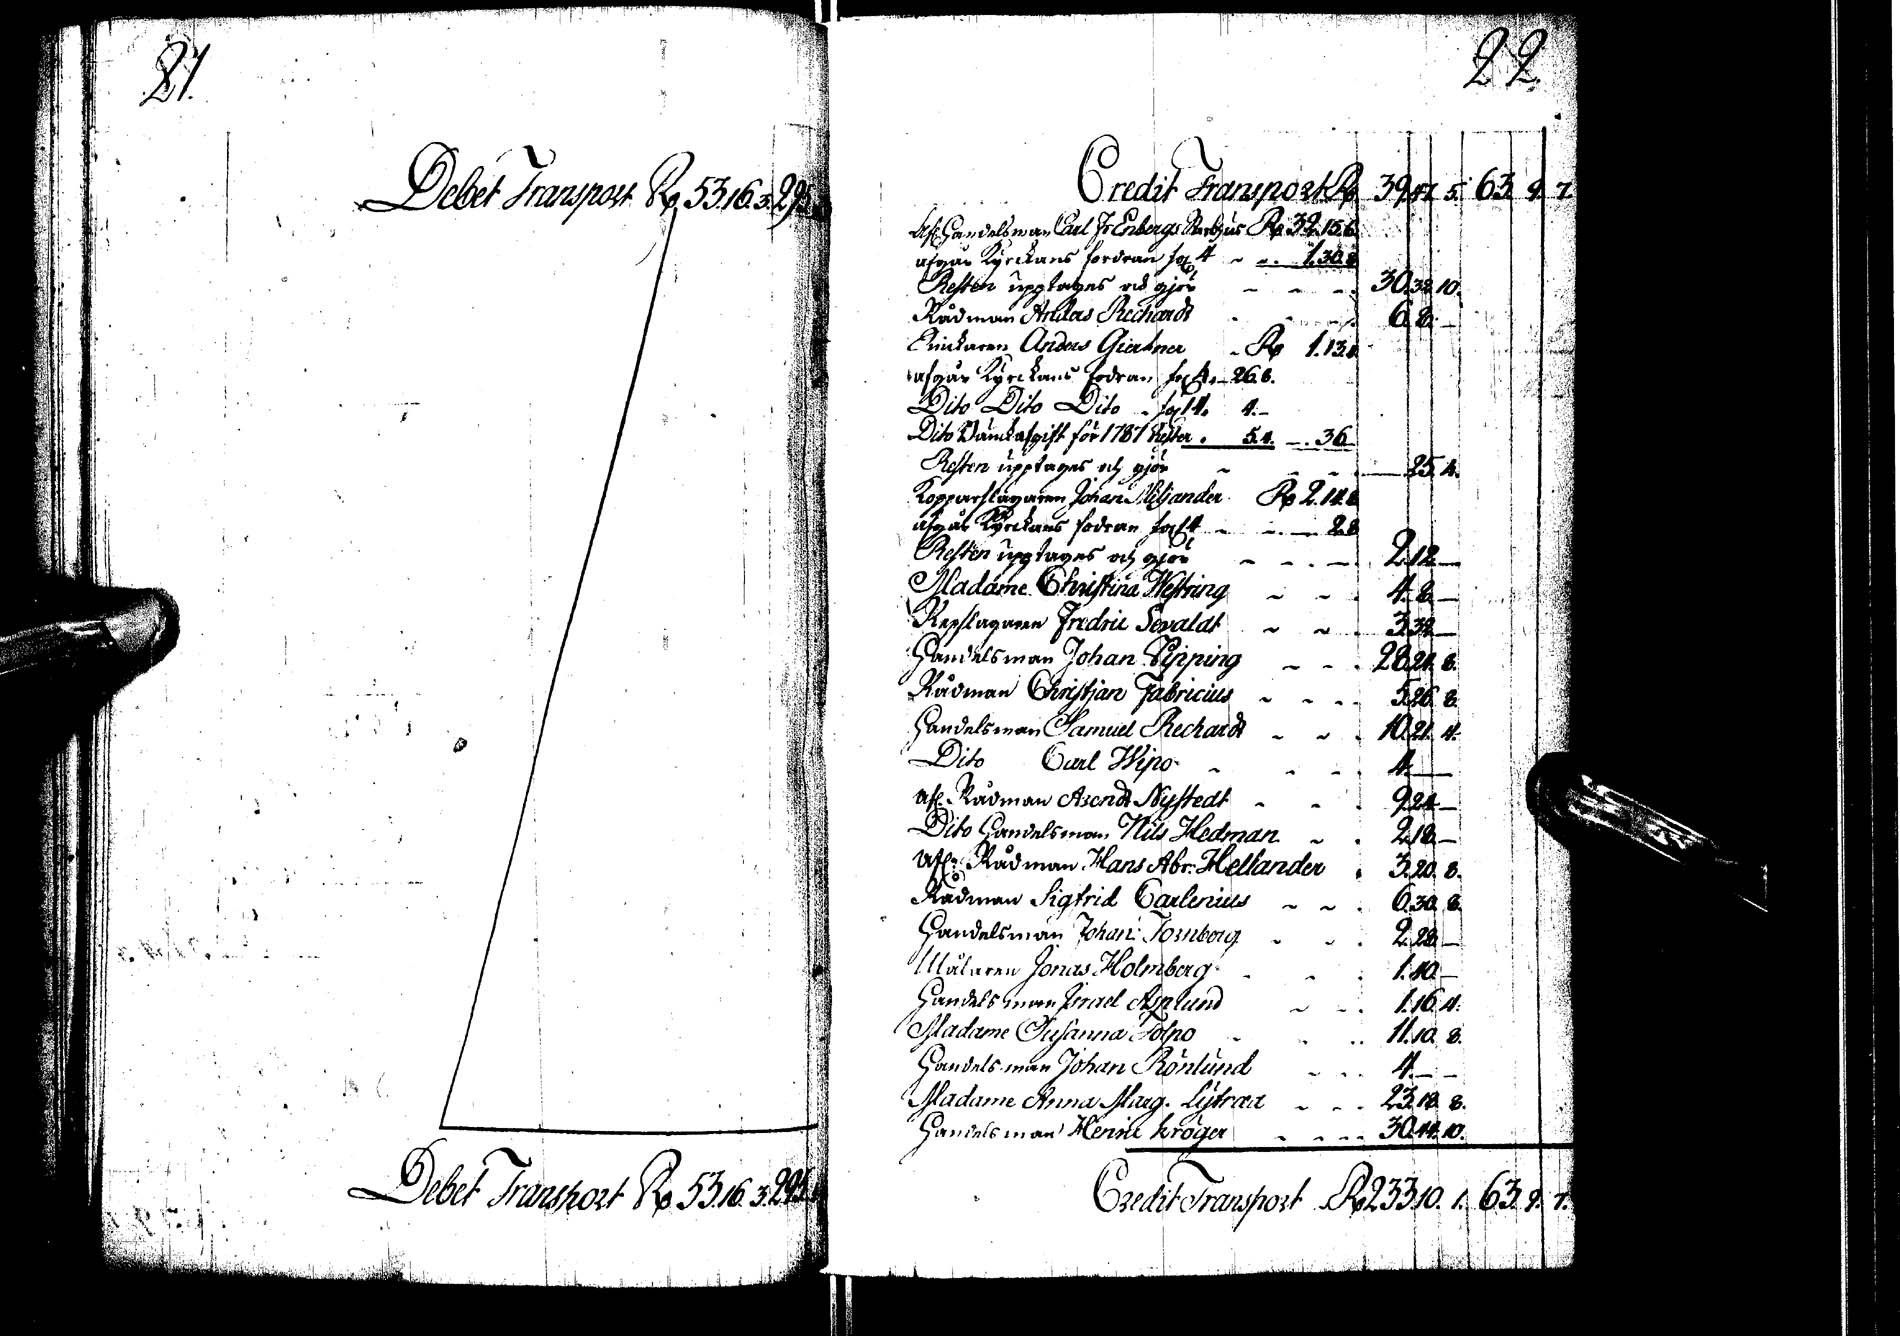 21.
Debet Transport Rd 53.16.3. 295.
Debet Transport Rd 53.16.3. 295.
22.
Credit Transport Rd 39.47.5. 63.9.7.
Afl. Handelsman Carl Fr Enbergs Sterbhus Rd 32.15.6
afgår Kyrckans fordran fol 4 1.30.8
Resten upptages och gjör 30.32.10.
Rådman Anders Rechardt 6.8.
Anders Giertner Rd 1.13.
afgår Kyrckans fodran fol 4. 26.8.
Dito Dito Dito fol 14. 4.
Dito för 1787 Rester. 5.4. 36
Resten upptages och gjör 25.4.
Kopparslagaren Johan Miljander Rd 2.14.8
afgår Kyrckans fodran fol 4 2.8
Resten upptages och gjör 2.12
Madame Christina Westring 4.8
Repslagaren Fredric Sevaldt 3.32
Handelsman Johan Pipping 28.21.8.
Rådman Christjan Fabricius 5.26.8.
Handelsman Samuel Rechardt 10.21.4.
Dito Carl Wipo 4
Afl. Rådman Arendt Nystedt 9.24
Dito Handelsman Nils Hedman 2.18.
Afl. Rådman Hans Abr. Hellander 3.20.8.
Rådman Sigfrid Carlenius 6.30.8.
Handelsman Johan Tornberg 2.28.
Målaren Jonas Holmberg 1.40
Handelsman Israel Asplund 1.16.4.
Madame Susanna Tolpo 11.10.8.
Handelsman Johan Rönlund 4.
Madame Anna Marg. Lytraa 23.18.8.
Handelsman Henric Kröger 30.44.10.
Credit Transport Rd 233.10.1. 63.9.7.